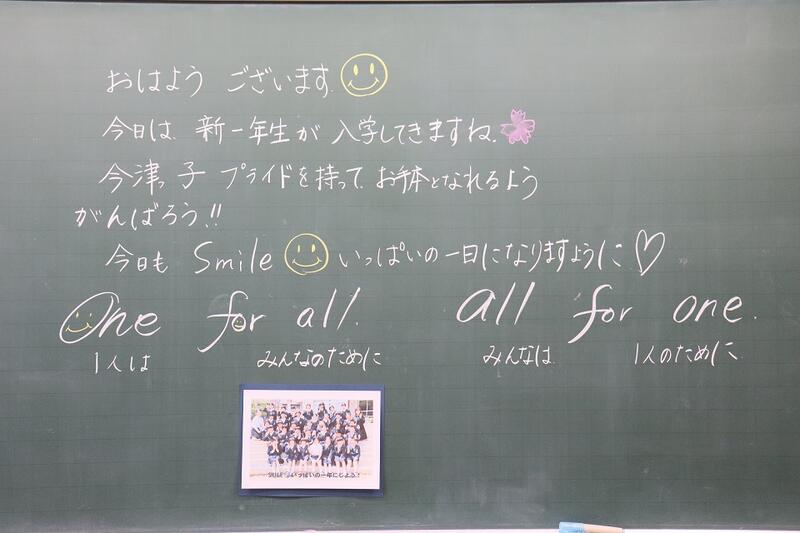 おはよう ございます.
今日は. 新一年生が 入学してきますね.
今津っ子 プライドを持って. お手本となれるよう
がんばろう!!
今日も Smile いっぱいの一日になりますように♡
One for all. all for one.
1人は みんなのために みんなは. 1人のために
いっぱいの一年にしよう!